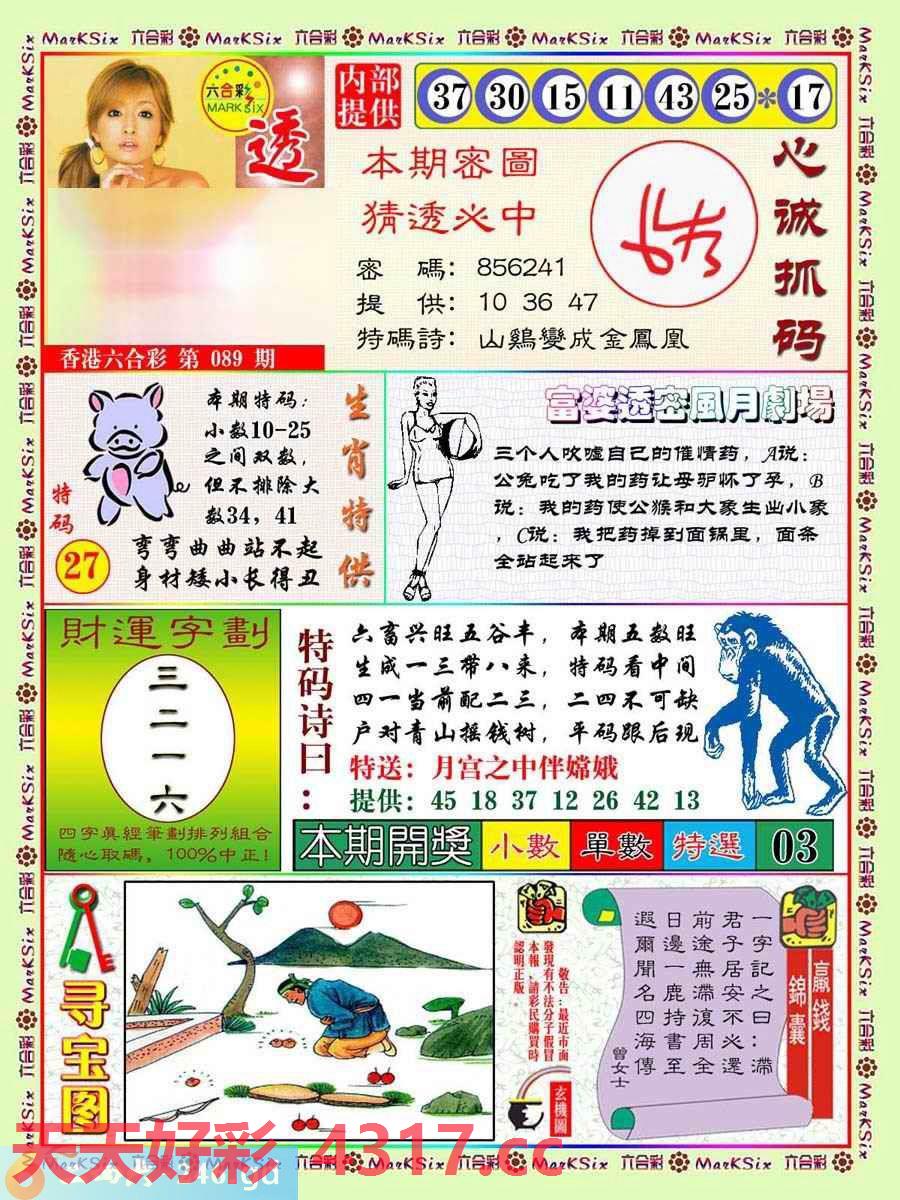 MarKSix 六合彩 MarKSix 六合彩 MarKSix 六合彩 MarKSix 六合彩 MarKSix 六合彩
六合彩
MARK SIX
透
内部
提供
37 30 15 11 43 25 * 17
本期密圖
猜透必中
密 碼: 856241
提 供: 10 36 47
特碼詩: 山鷄變成金鳳凰
心诚抓码
香港六合彩 第 089 期
特码
27
本期特码:
小数10-25
之间双数,
但不排除大
数34, 41
弯弯曲曲站不起
身材矮小长得丑
生肖特供
富婆透密風月劇場
三个人吹嘘自己的催情药, A说:
公兔吃了我的药让母驴怀了孕, B
说: 我的药使公猴和大象生出小象
, C说: 我把药掉到面锅里, 面条
全站起来了
財運字劃
三
二
一
六
四字真經筆劃排列組合
隨心取碼, 100%中正!
特码诗曰:
六畜兴旺五谷丰, 本期五数旺
生成一三带八来, 特码看中间
四一当前配二三, 二四不可缺
户对青山摇钱树, 平码跟后现
特送: 月宫之中伴嫦娥
提供: 45 18 37 12 26 42 13
本期開獎 小數 單數 特選 03
寻宝图
敬告:最近市面
發現有不法分子假冒
本報,請彩民購買時
認明正版。
玄機圖
一字記之曰:滯
君子居安不必還
前途無滯復周全
日邊一鹿持書至
遐爾聞名四海傳
曾女士
贏錢
錦囊
天天好彩 4317.cc
MarKSix 六合彩 MarKSix 六合彩 MarKSix 六合彩 MarKSix 六合彩